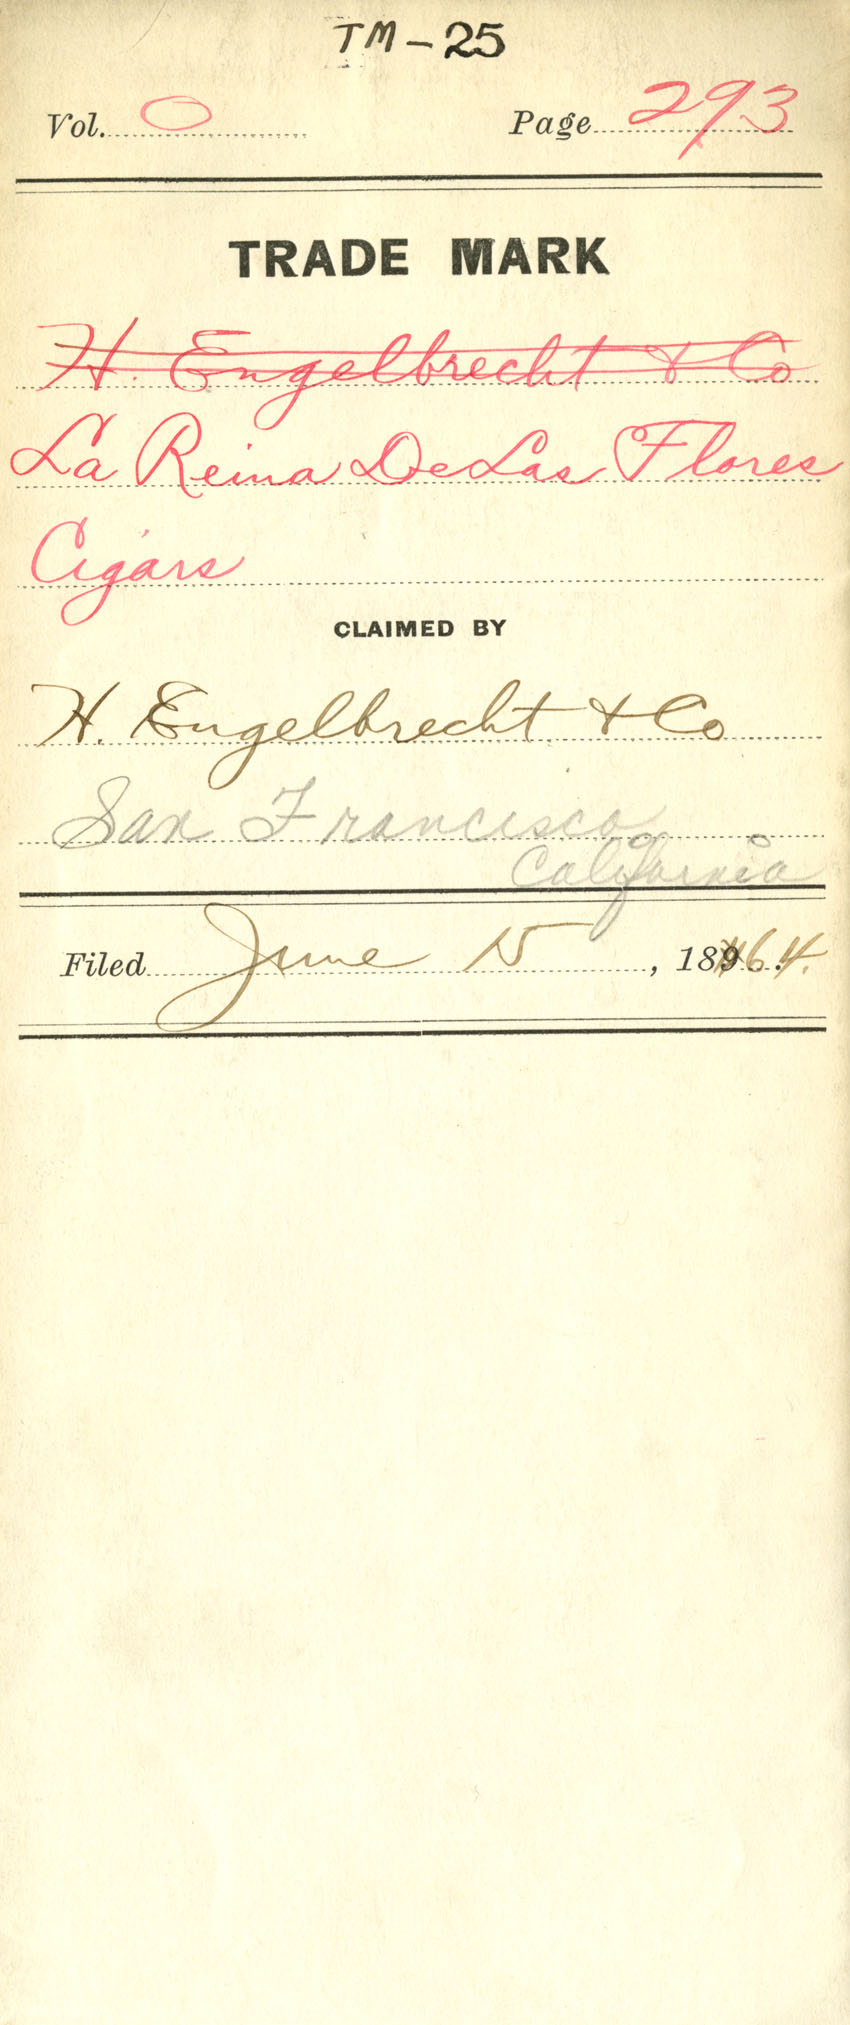 TM-25
Vol. 0 Page 293
TRADE MARK
H. Engelbrecht & Co
La Reina De Las Flores
Cigars
CLAIMED BY
H. Engelbrecht & Co
San Francisco
California
Filed June 15, 1864.